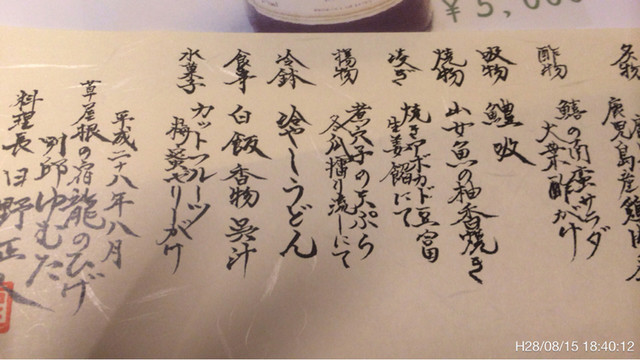 ¥5,00
鹿児島産鰻
酢物
鱚の南蛮サラダ
大葉酢がけ
吸物
鱧吸
焼物
山女魚の柚香焼き
凌ぎ
焼きアボカド豆富
生姜餡にて
揚物
煮穴子の天ぷら
冬瓜擂り流しにて
冷鉢
冷やしうどん
食事
白飯 香物 呉汁
水菓子
カットフルーツ
梅蜜ゼリーがけ
平成二十八年八月
草屋根の宿 龍のひげ
別邸ゆむた
料理長 日野正
H28/08/15 18:40:12